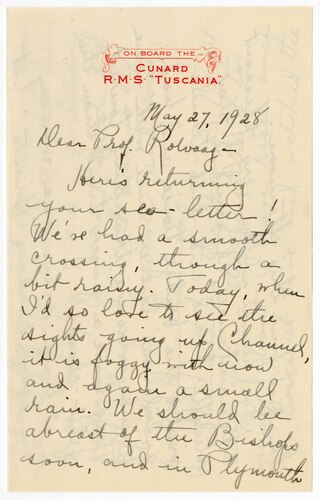 ON BOARD THE
CUNARD
R·M·S "TUSCANIA"
May 27, 1928
Dear Prof. Rolvaag -
Here's returning
your sea-letter!
We've had a smooth
crossing, though a
bit rainy. Today, when
I'd so love to see the
sights going up Channel,
it is foggy with now
and again a small
rain. We should be
abreast of the Bishops
soon, and in Plymouth